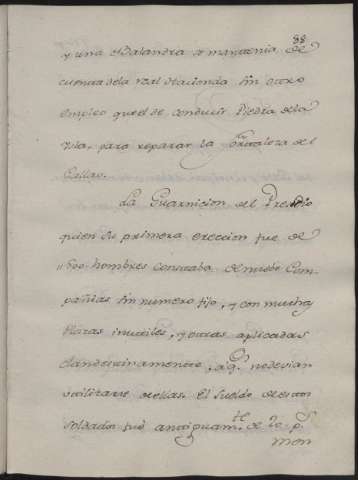 88
y una Balandra se mantenia de
cuenta dela real Hacienda sin otro
empleo que el de conducir Piedra dela
Ysla, para reparar la fortaleza del
Callao.
La Guarnicion del Presidio
quien su primera ereccion fue de
500 hombres constaba de nuebe Com-
pañias sin numero fijo, y con muchas
Plazas inutiles, y otras aplicadas
clandestinamente, a q.n no devian
utilizarse de ellas. El sueldo de estos
soldados fue antiguam.te de 20 p.s
mon